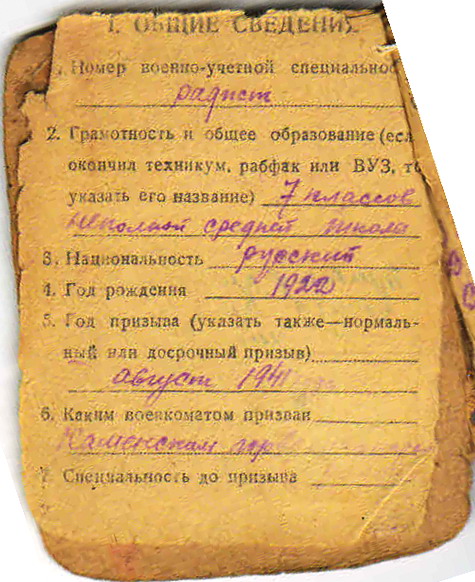 I. ОБЩИЕ СВЕДЕНИ
Номер военно-учетной специальнос
радист
2. Грамотность и общее образование (есл
окончил техникум, рабфак или ВУЗ, то
указать его название) 7 классов
неполной средней школа
3. Национальность русский
4. Год рождения 1922
5. Год призыва (указать также—нормаль-
ный или досрочный призыв)
август 1941
6. Каким военкоматом призван
Каменским
7. Специальность до призыва